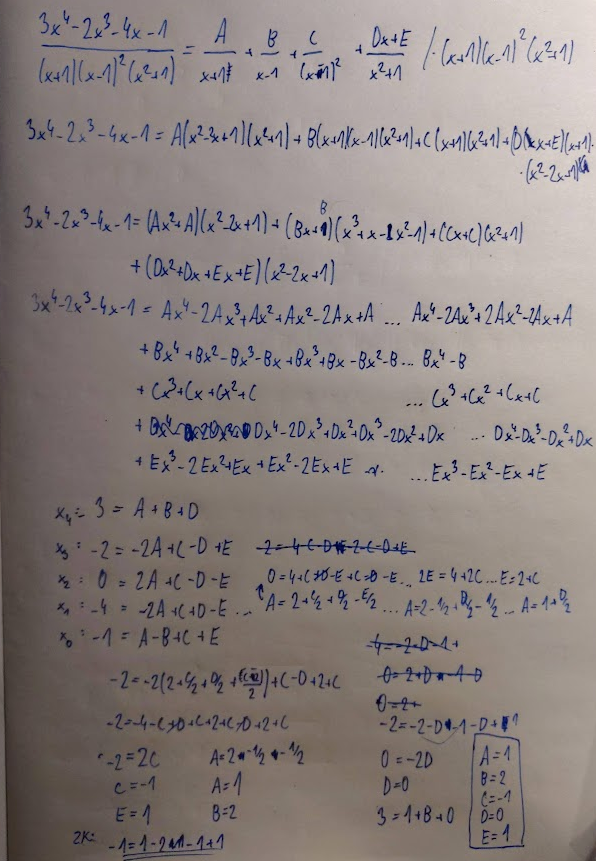 3x⁴-2x³-4x-1 / (x+1)(x-1)²(x²+1) = A/x+1 + B/x-1 + C/(x-1)² + Dx+E/x²+1 /·(x+1)(x-1)²(x²+1)
3x⁴-2x³-4x-1 = A(x²-2x+1)(x²+1)+B(x+1)(x-1)(x²+1)+C(x+1)(x²+1)+(Dx+E)(x+1)·
·(x²-2x+1)
3x⁴-2x³-4x-1=(Ax²+A)(x²-2x+1)+(Bx+B)(x³+x-1x²-1)+(Cx+C)(x²+1)
+(Dx²+Dx+Ex+E)(x²-2x+1)
3x⁴-2x³-4x-1 = Ax⁴-2Ax³+Ax²+Ax²-2Ax+A ... Ax⁴-2Ax³+2Ax²-2Ax+A
+Bx⁴+Bx²-Bx³-Bx+Bx³+Bx-Bx²-B... Bx⁴-B
+Cx³+Cx+Cx²+C ...Cx³+Cx²+Cx+C
+ Dx⁴-2Dx³+Dx²+Dx³-2Dx²+Dx ... Dx⁴-Dx³-Dx²+Dx
+Ex³-2Ex²+Ex+Ex²-2Ex+E ...Ex³-Ex²-Ex+E
x₄: 3 = A+B+D
x₃: -2=-2A+C-D+E
x₂: 0=2A+C-D-E 0=4+C+D-E+C-D-E... 2E=4+2C...E=2+C
x₁: -4=-2A+C+D-E... A=2+C/2+D/2-E/2 ...A=2-1/2+D/2-1/2... A=1+D/2
x₀: -1=A-B+C+E
-2=-2(2+C/2+D/2+ )+C-D+2+C
-2=-4-C-D+C+2+C-D+2+C -2=-2-D-1-D+1
-2=2C A=2-1/2-1/2 0=-2D
C=-1 A=1 D=0
E=1 B=2 3=1+B+0
A=1
B=2
C=-1
D=0
E=1
ZK: -1=1-2-1+1